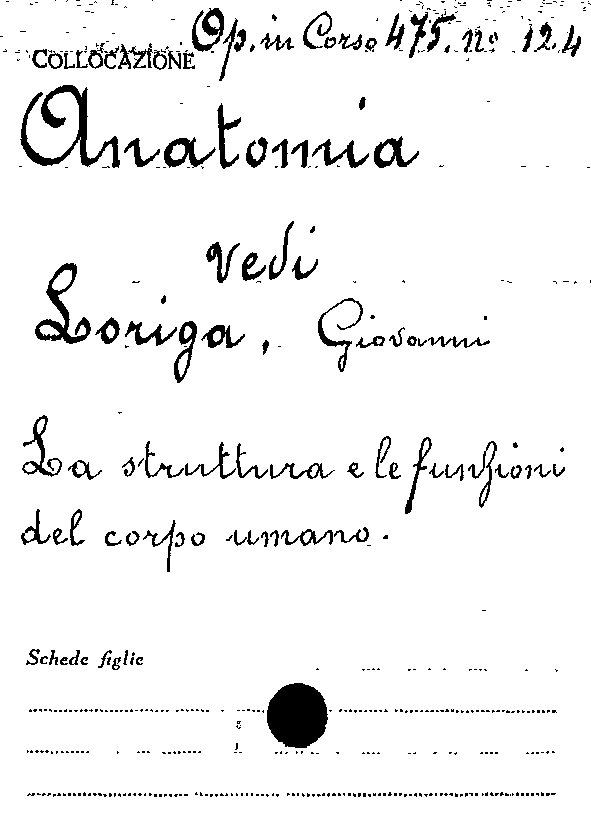 COLLOCAZIONE Op. in Corso 475. nº 12.4
Anatomia
vedi
Loriga, Giovanni
La struttura e le funzioni
del corpo umano.
Schede figlie